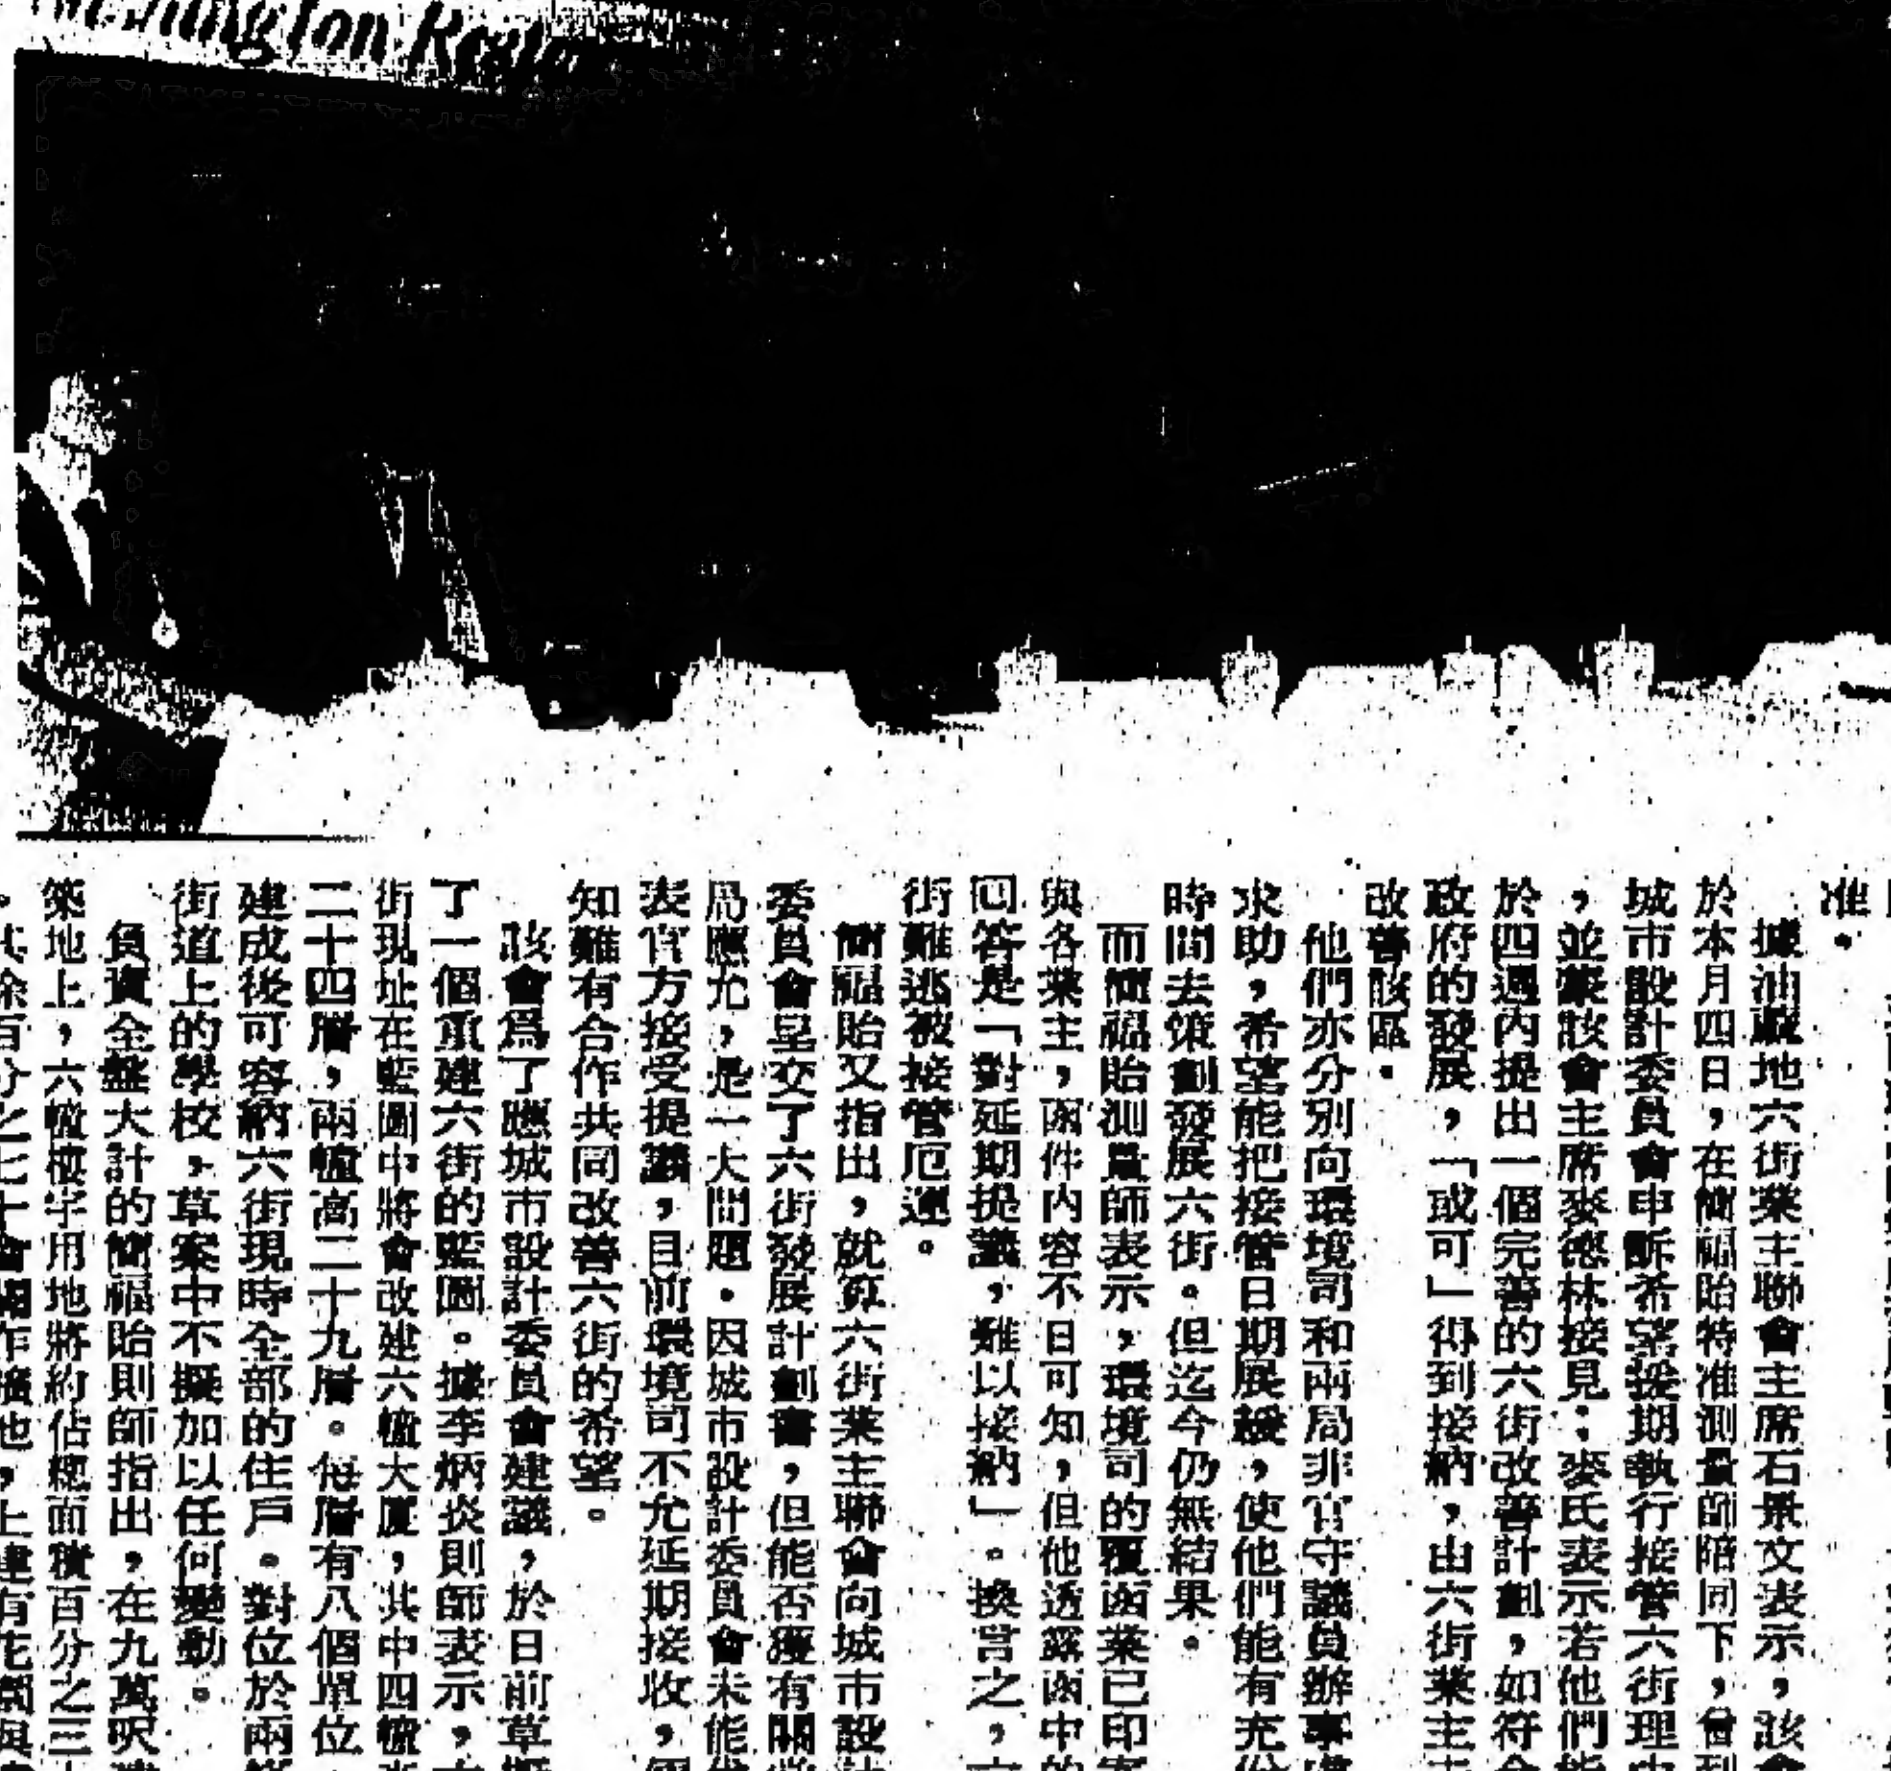 准。
據油蔴地六街業主聯會主席石景文表示，該會
於本月四日，在簡福貽特准測量師陪同下，曾到
城市設計委員會申訴希望援期執行接管六街理由
，並蒙該會主席麥德林接見：麥氏表示若他們能
於四週內提出一個完善的六街改善計劃，如符合
政府的發展，「或可」得到接納，由六街業主
改善該區。
他們亦分別向環境司和兩局非官守議員辦事處
求助，希望能把接管日期展緩，使他們能有充份
時間去策劃發展六街。但迄今仍無結果。
而簡福貽測量師表示，環境司的覆函業已印寄
與各業主，函件內容不日可知，但他透露函中的
回答是「對延期提議，難以接納」。換言之，六
街難逃被接管厄運。
簡福貽又指出，就算六街業主聯會向城市設計
委員會呈交了六街發展計劃書，但能否獲有關當
局應允，是一大問題。因城市設計委員會未能代
表官方接受提議，目前環境司不允延期接收，
知難有合作共同改善六街的希望。
該會為了應城市設計委員會建議，於日前草擬
了一個重建六街的藍圖。據李炳炎則師表示，
街現址在藍圖中將會改建六幢大厦，其中四幢
二十四層，兩幢高二十九層。每層有八個單位，
建成後可容納六街現時全部的住戶。對位於兩
街道上的學校，草案中不擬加以任何變動。
負責全盤大計的簡福貽則師指出，在九萬呎
築地上，六幢樓宇用地將約佔總面積百分之三
，其餘百分之七十會闢作曠地，上建有花園與